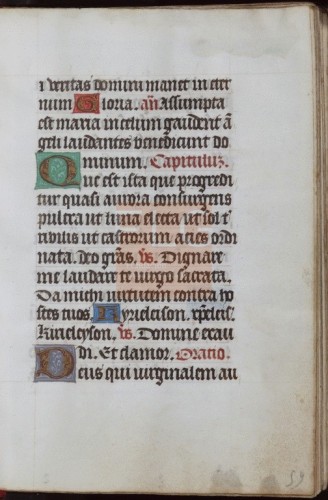 i veritas domini manet in eter
num Gloria. añ Assumpta
est maria in celum gaudent ā
geli laudantes benedicunt do
minum. Capituluz.
Que est ista que progredi
tur quasi aurora consurgens
pulcra ut luna electa ut sol t
ribilis ut castrorum acies ordi
nata. deo grās. vs. Dignare
me laudare te virgo sacrata.
Da michi virtutem contra ho
stes tuos. Kyrieleison. xp̄eleis.
Kirieleyson. vs. Domine exau
di. Et clamor. Oratio.
Deus qui virginalem au
59